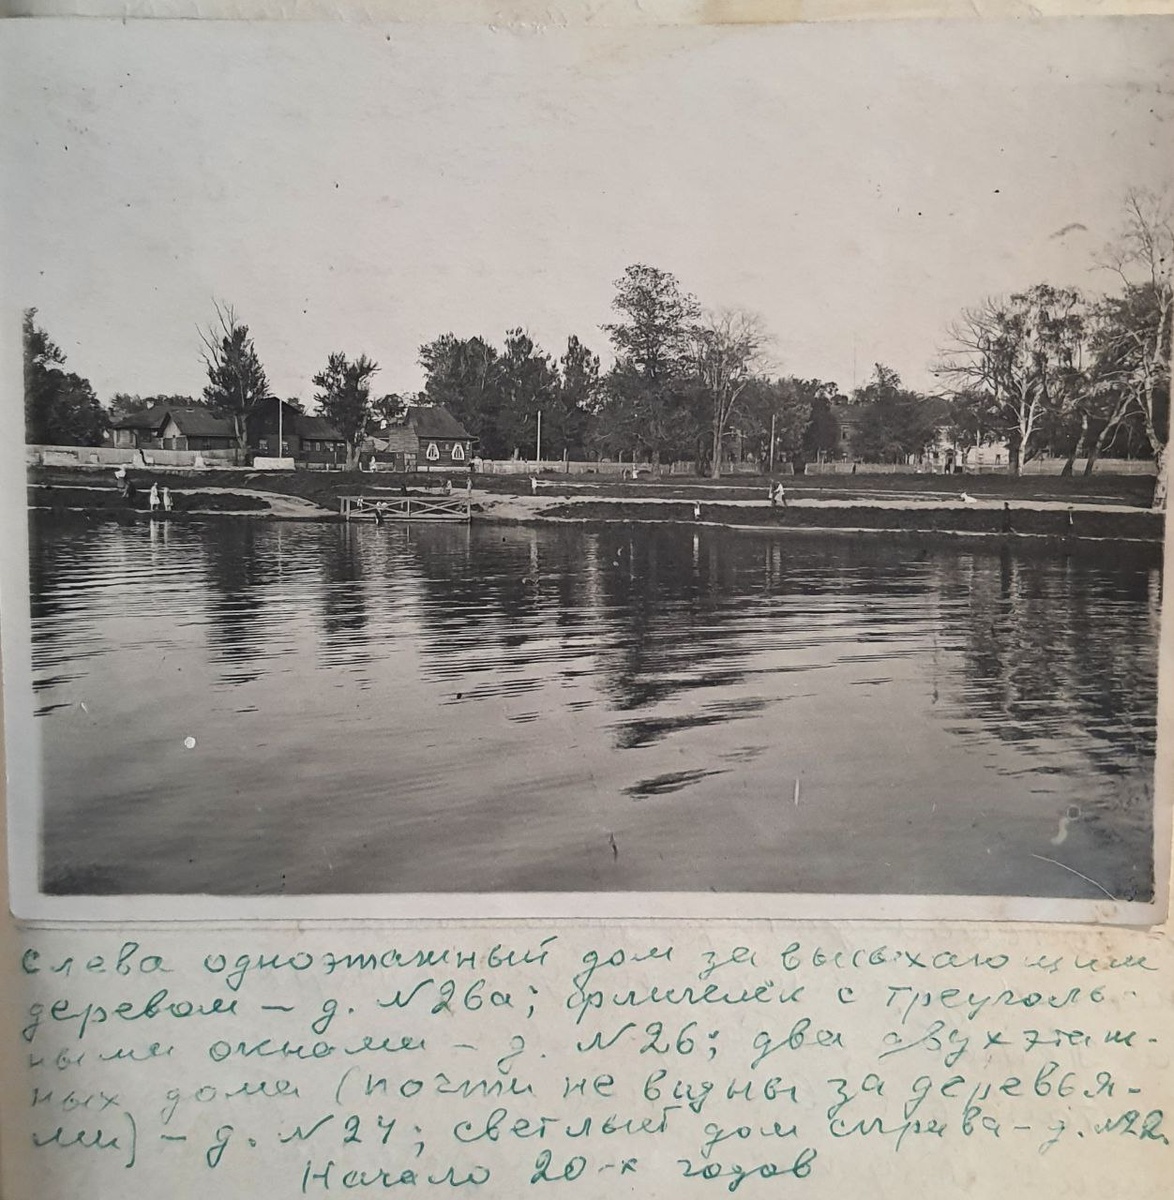 слева одноэтажный дом за высыхающим
деревом – д. №26а; флигелёк с треуголь-
ными окнами – д. №26; два двухэтаж-
ных дома (почти не видны за деревья-
ми) – д. №24; светлый дом справа – д. №22.
Начало 20-х годов